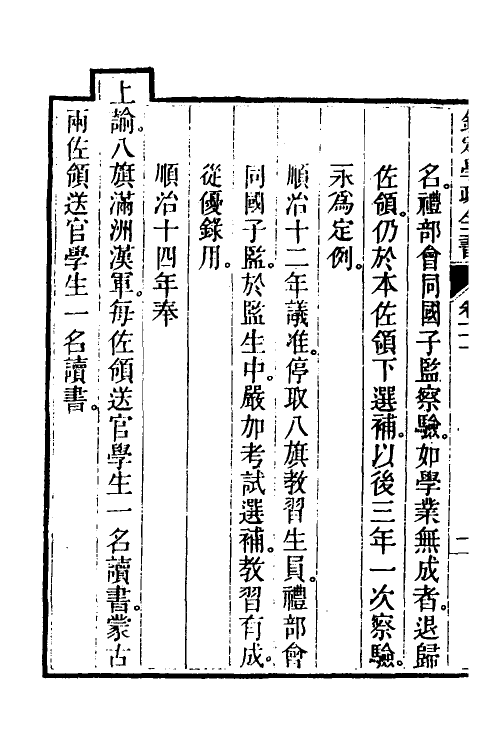 欽定學政全書 卷二十二
名。禮部會同國子監察驗。如學業無成者。退歸
佐領。仍於本佐領下選補。以後三年一次察驗。
永爲定例。
順治十二年議准。停取八旗教習生員。禮部會
同國子監。於監生中。嚴加考試選補。教習有成。
從優錄用。
順治十四年奉
上諭。八旗滿洲漢軍。每佐領送官學生一名讀書。蒙古
兩佐領送官學生一名讀書。